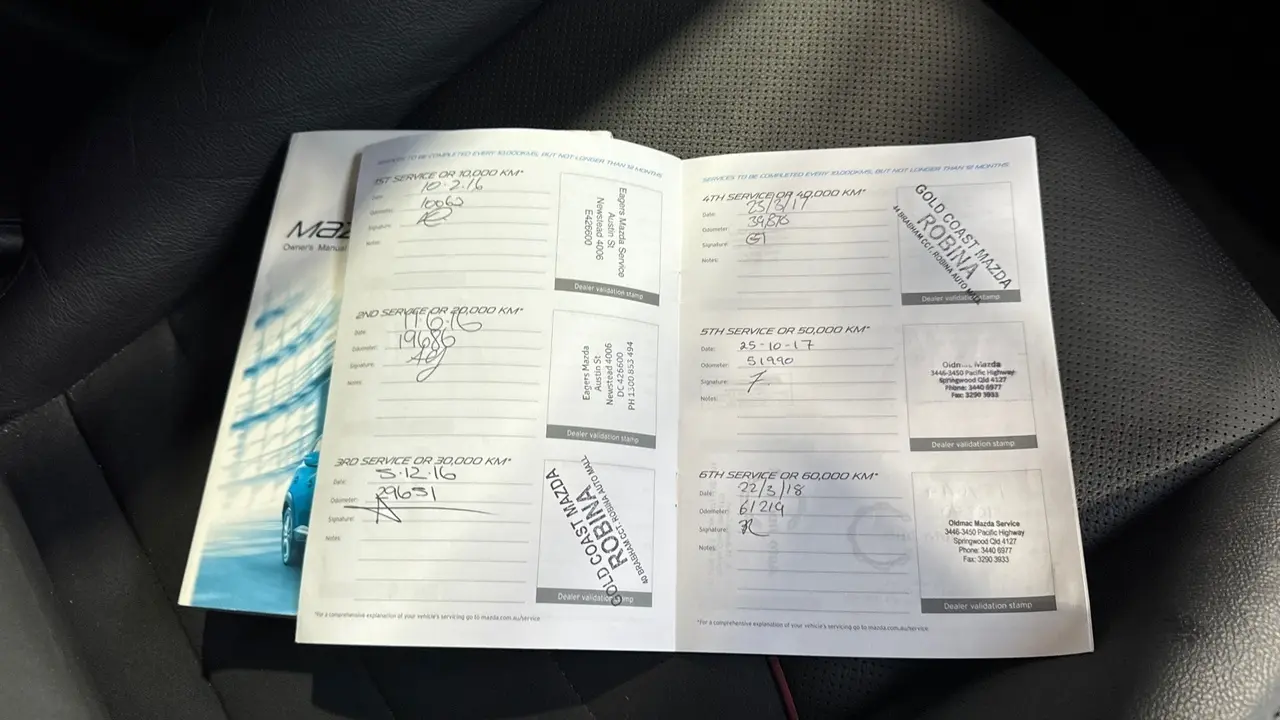 Maz
Owner's Manual
SERVICES TO BE COMPLETED EVERY 10,000KMS, BUT NOT LONGER THAN 12 MONTHS
1ST SERVICE OR 10,000 KM*
Date: 10-2.16
Odometer: 10062
Signature:
Notes:
Eagers Mazda Service
Austin St
Newstead 4006
E426600
Dealer validation stamp
2ND SERVICE OR 20,000 KM*
Date: 11.6.16
Odometer: 19686
Signature:
Notes:
Eagers Mazda
Austin St
Newstead 4006
DC 426600
PH 1300 853 494
Dealer validation stamp
3RD SERVICE OR 30,000 KM*
Date: 5.12.16
Odometer: 29651
Signature:
Notes:
GOLD COAST MAZDA
ROBINA
40 BRABHAM CCT. ROBINA AUTO MALL
Dealer validation stamp
*For a comprehensive explanation of your vehicle's servicing go to mazda.com.au/service
SERVICES TO BE COMPLETED EVERY 10,000KMS, BUT NOT LONGER THAN 12 MONTHS
4TH SERVICE OR 40,000 KM*
Date: 25/5/17
Odometer: 39,876
Signature:
Notes:
GOLD COAST MAZDA
ROBINA
44 BRABHAM CCT ROBINA AUTO
Dealer validation stamp
5TH SERVICE OR 50,000 KM*
Date: 25-10-17
Odometer: 51990
Signature:
Notes:
Oldmac Mazda
3446-3450 Pacific Highway
Springwood Qld 4127
Phone: 3440 6977
Fax: 3290 3933
Dealer validation stamp
6TH SERVICE OR 60,000 KM*
Date: 22/3/18
Odometer: 61219
Signature:
Notes:
Oldmac Mazda Service
3446-3450 Pacific Highway
Springwood Qld 4127
Phone: 3440 6977
Fax: 3290 3933
Dealer validation stamp
*For a comprehensive explanation of your vehicle's servicing go to mazda.com.au/service